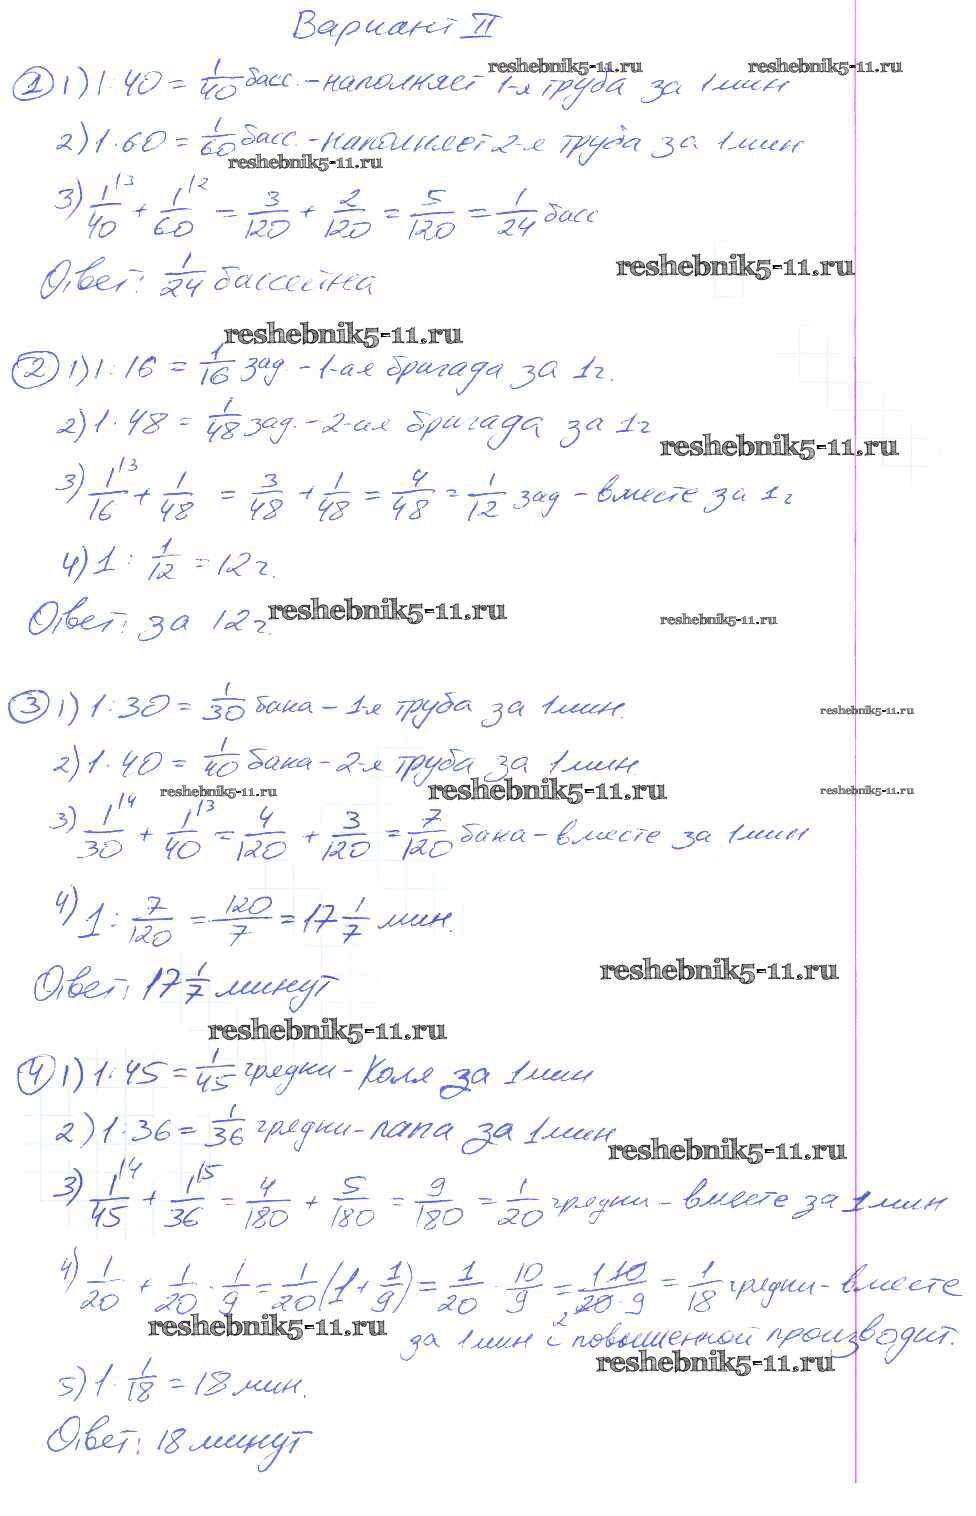 Вариант II
reshebnik5-11.ru reshebnik5-11.ru
① 1) 1:40 = 1/40 басс. - наполняет 1-я труба за 1 мин
2) 1:60 = 1/60 басс. - наполняет 2-я труба за 1 мин
reshebnik5-11.ru
3) 1/40 \3 + 1/60 \2 = 3/120 + 2/120 = 5/120 = 1/24 басс
Ответ: 1/24 бассейна
reshebnik5-11.ru
reshebnik5-11.ru
② 1) 1:16 = 1/16 зад. - 1-ая бригада за 1 г.
2) 1:48 = 1/48 зад. - 2-ая бригада за 1 г
reshebnik5-11.ru
3) 1/16 \3 + 1/48 = 3/48 + 1/48 = 4/48 = 1/12 зад - вместе за 1 г
4) 1 : 1/12 = 12 г.
Ответ: за 12 г.
reshebnik5-11.ru
reshebnik5-11.ru
③ 1) 1:30 = 1/30 бака - 1-я труба за 1 мин.
reshebnik5-11.ru
2) 1:40 = 1/40 бака - 2-я труба за 1 мин
reshebnik5-11.ru reshebnik5-11.ru reshebnik5-11.ru
3) 1/30 \4 + 1/40 \3 = 4/120 + 3/120 = 7/120 бака - вместе за 1 мин
4) 1 : 7/120 = 120/7 = 17 1/7 мин.
Ответ: 17 1/7 минут
reshebnik5-11.ru
reshebnik5-11.ru
④ 1) 1:45 = 1/45 грядки - Коля за 1 мин
2) 1:36 = 1/36 грядки - папа за 1 мин
reshebnik5-11.ru
3) 1/45 \4 + 1/36 \5 = 4/180 + 5/180 = 9/180 = 1/20 грядки - вместе за 1 мин
4) 1/20 + 1/20 · 1/9 = 1/20 (1 + 1/9) = 1/20 · 10/9 = 1·10/20·9 = 1/18 грядки - вместе
2
reshebnik5-11.ru
за 1 мин с повышенной производит.
reshebnik5-11.ru
5) 1 : 1/18 = 18 мин.
Ответ: 18 минут